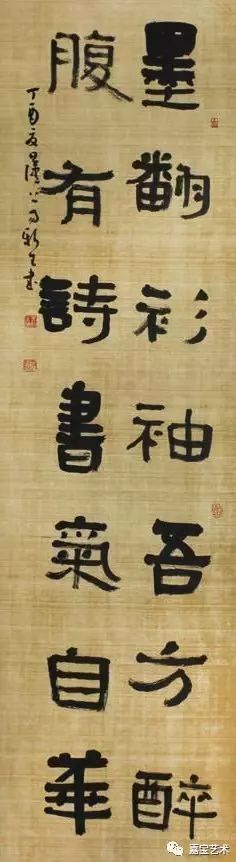 墨翻衫袖吾方醉
腹有詩書氣自華
丁酉夏
嘉宝艺术